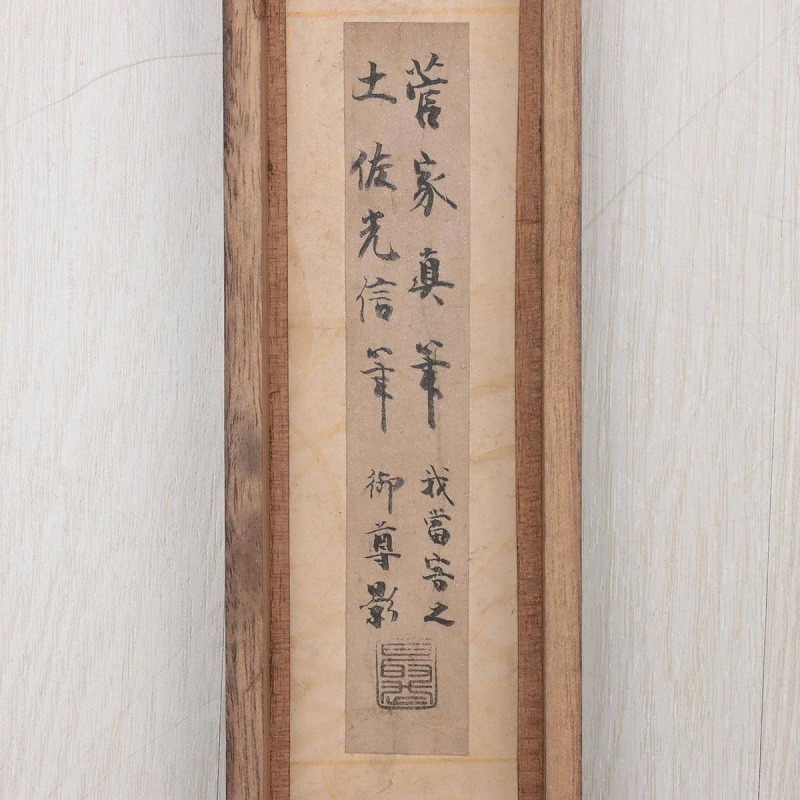 菅家真筆 我當寄之
土佐光信筆 御尊影